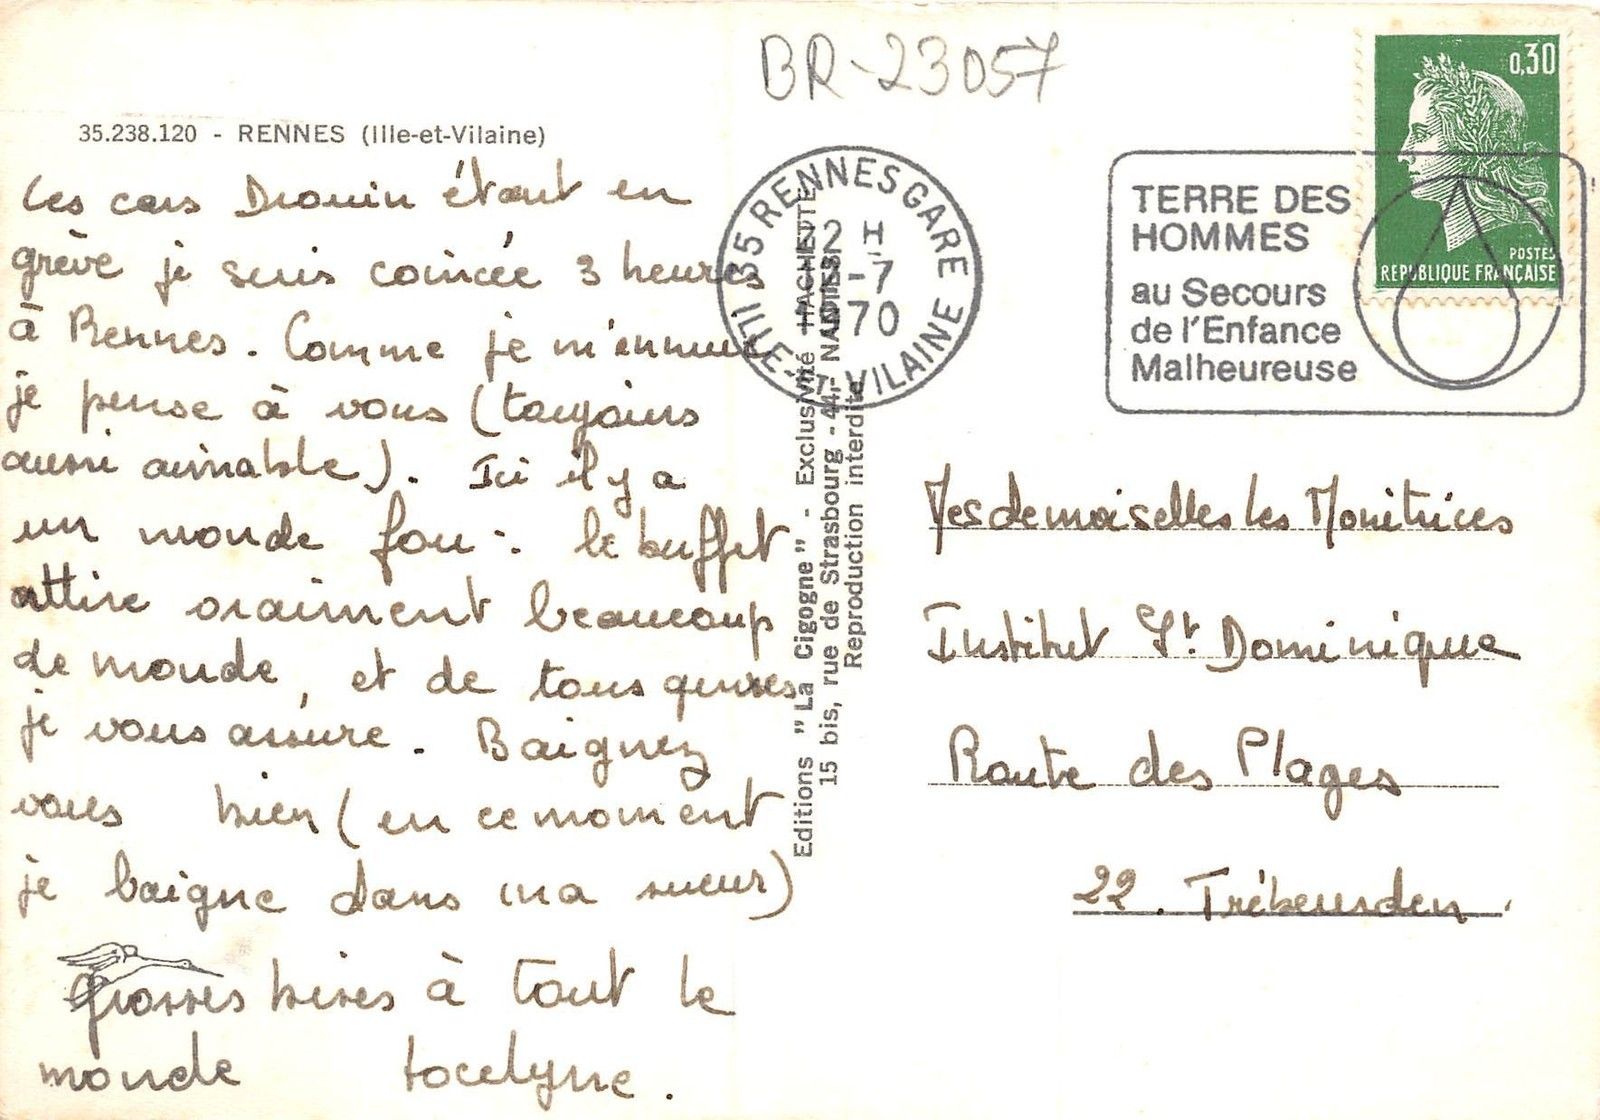 BR-23057
35.238.120 - RENNES (Ille-et-Vilaine)
Les cars Drouin étant en
grève je suis coincée 3 heures
à Rennes. Comme je m'ennuie
je pense à vous (toujours
aussi aimable). Ici il y a
un monde fou : le buffet
attire vraiment beaucoup
de monde, et de tous genres
je vous assure. Baignez
vous bien (en ce moment
je baigne dans ma sueur)
grosses bises à tout le
monde Jocelyne.
Editions "La Cigogne" - Exclusivité HACHETTE
15 bis, rue de Strasbourg - 44 - NANTES
Reproduction interdite
35 RENNES GARE
ILLE-ET-VILAINE
H
-7
70
TERRE DES
HOMMES
au Secours
de l'Enfance
Malheureuse
0,30
POSTES
REPUBLIQUE FRANÇAISE
Mesdemoiselles les Monitrices
Institut St Dominique
Route des Plages
22. Trébeurden.